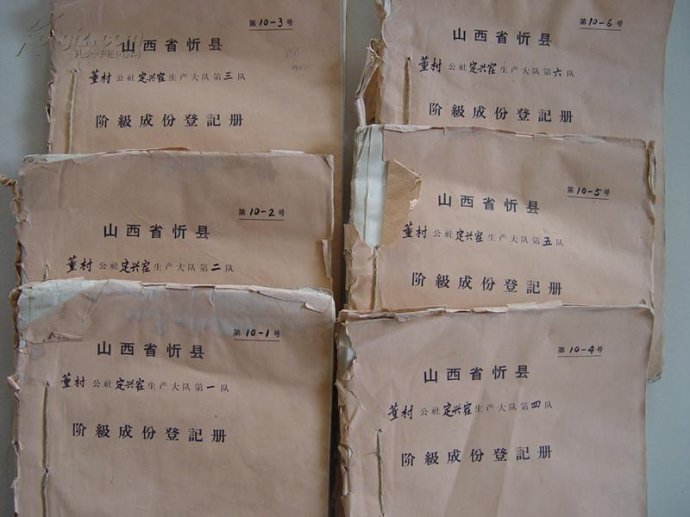 第10-3号
山西省忻县
董村公社定兴寨生产大队第三队
阶级成份登記册
第10-6号
山西省忻县
董村公社定兴寨生产大队第六队
阶級成份登記册
第10-2号
山西省忻县
董村公社定兴寨生产大队第二队
第10-5号
山西省忻县
董村公社定兴寨生产大队第五队
阶級成份登記册
第10-1号
山西省忻县
董村公社定兴寨生产大队第一队
阶級成份登記册
第10-4号
山西省忻县
董村公社定兴寨生产大队第四队
阶級成份登記册